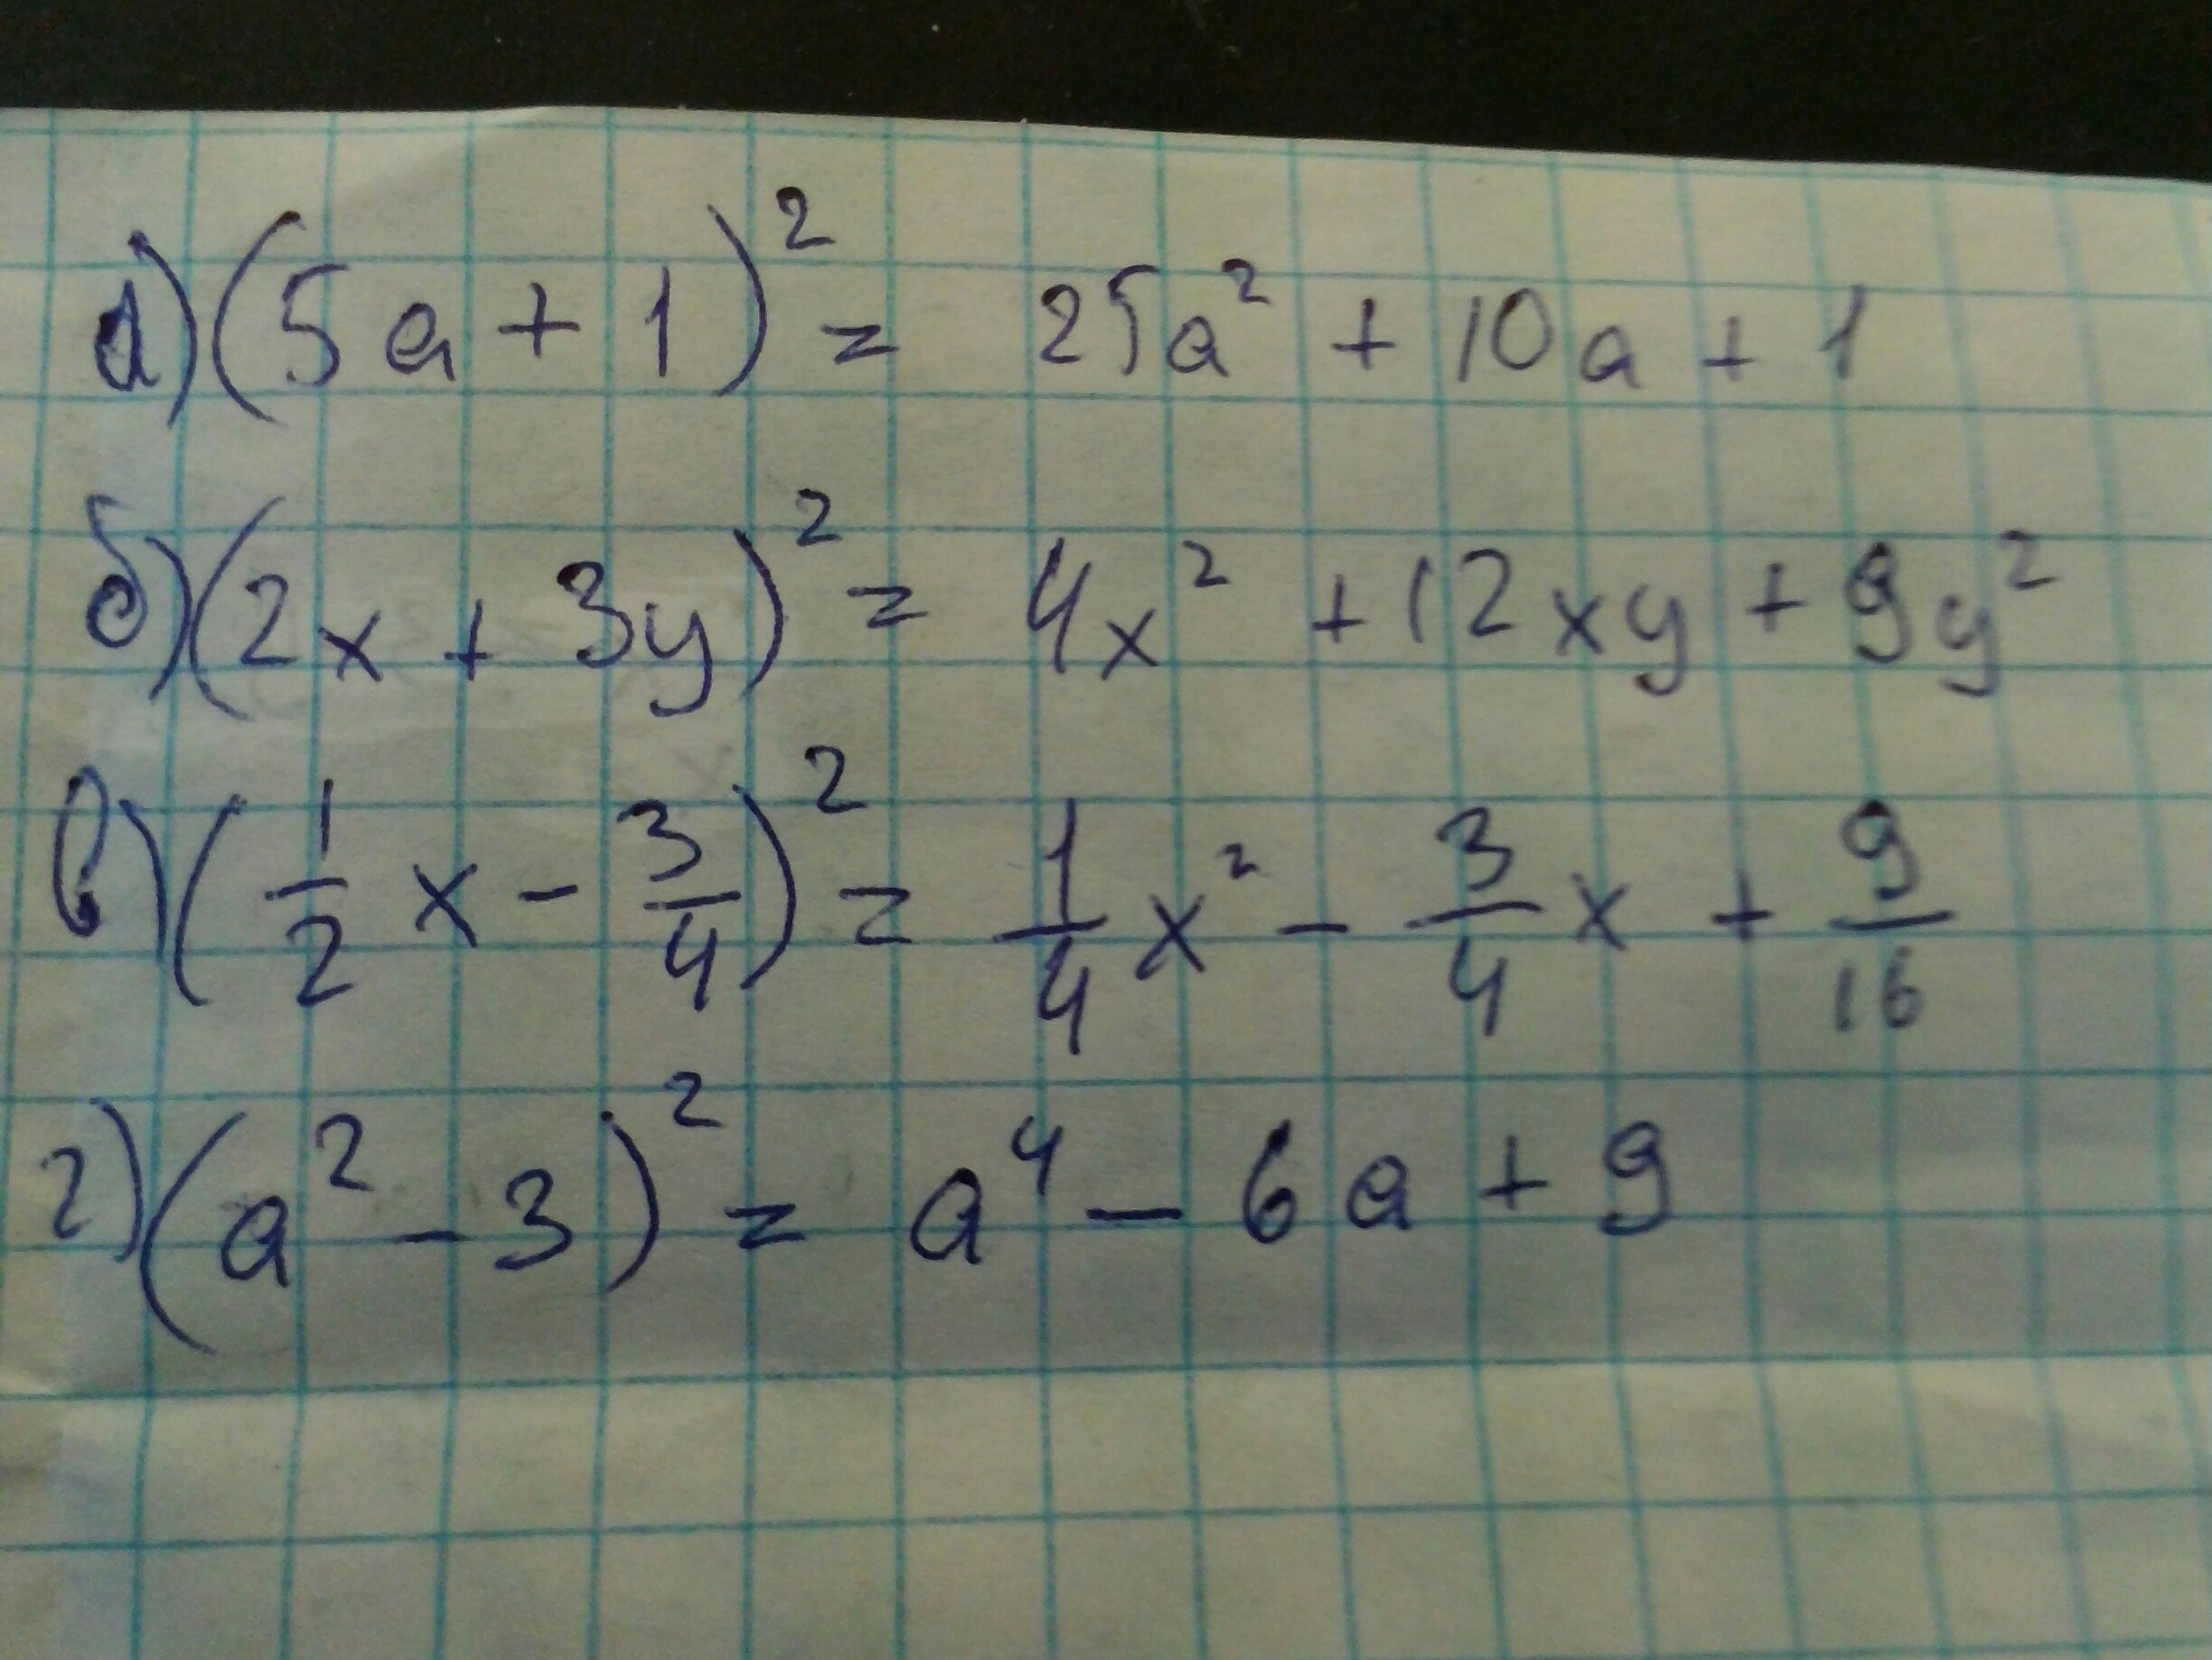 а) (5a + 1)² = 25a² + 10a + 1
б) (2x + 3y)² = 4x² + 12xy + 9y²
в) (1/2 x - 3/4)² = 1/4 x² - 3/4 x + 9/16
г) (a² - 3)² = a⁴ - 6a + 9